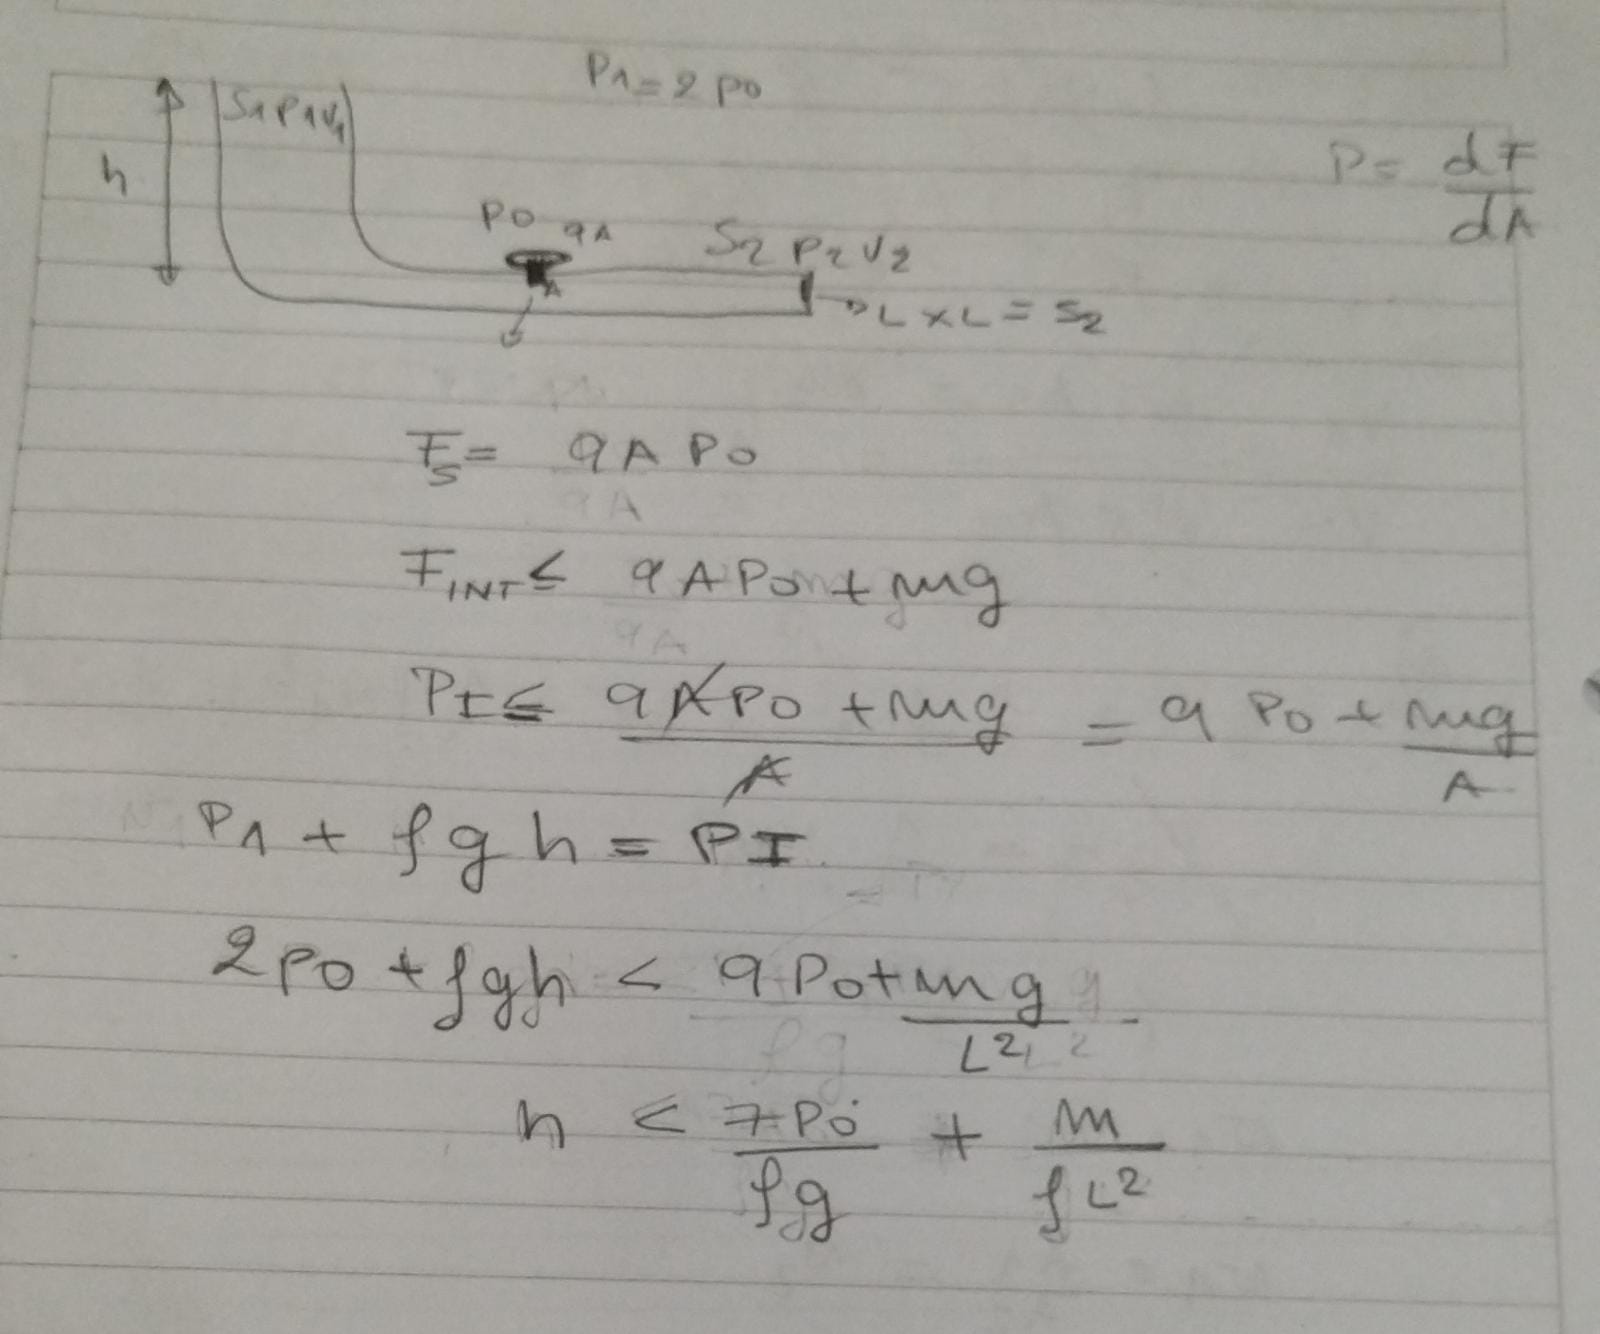 P1 = 2 P0
S1 P1 V1
P = dF/dA
h
P0 9A
S2 P2 V2
A
L × L = S2
Fs = 9 A P0
F INT ≤ 9 A P0 + mg
PI ≤ (9 A P0 + mg)/A = 9 P0 + mg/A
P1 + ρ g h = PI
2 P0 + ρ g h < 9 P0 + mg/L²
h < 7 P0/ρg + m/ρL²